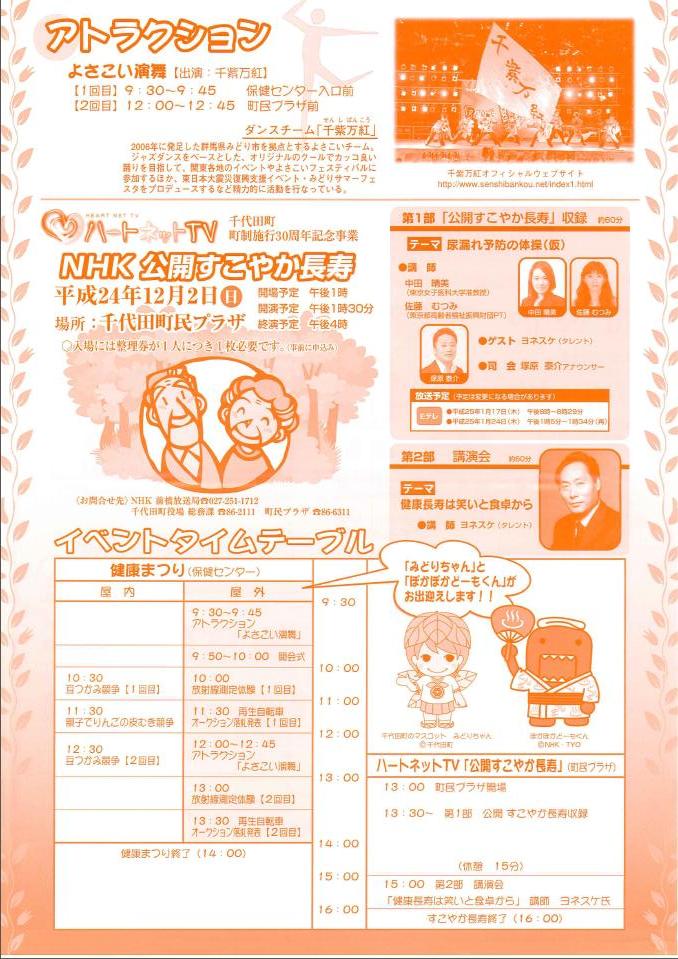 アトラクション
よさこい演舞【出演：千紫万紅】
【1回目】9：30～9：45　保健センター入口前
【2回目】12：00～12：45　町民プラザ前
せんしばんこう
ダンスチーム「千紫万紅」
2006年に発足した群馬県みどり市を拠点とするよさこいチーム。
ジャズダンスをベースとした、オリジナルのクールでカッコ良い
踊りを目指して、関東各地のイベントやよさこいフェスティバルに
参加するほか、東日本大震災復興支援イベント・みどりサマーフェ
スタをプロデュースするなど精力的に活動を行なっている。
千紫万紅
千紫万紅オフィシャルウェブサイト
http://www.senshibankou.net/index1.html
HEART NET TV
ハートネットTV
千代田町
町制施行30周年記念事業
NHK 公開すこやか長寿
平成24年12月2日(日)
開場予定　午後1時
開演予定　午後1時30分
終演予定　午後4時
場所：千代田町民プラザ
○入場には整理券が1人につき1枚必要です。(事前に申込み)
(お問合せ先) NHK 前橋放送局☎027-251-1712
千代田町役場 総務課 ☎86-2111　町民プラザ ☎86-6311
第1部「公開すこやか長寿」収録　約60分
テーマ 尿漏れ予防の体操(仮)
●講　師
中田 晴美
(東京女子医科大学准教授)
佐藤 むつみ
(東京都高齢者福祉振興財団PT)
中田 晴美
佐藤 むつみ
●ゲスト ヨネスケ(タレント)
●司　会 塚原 泰介アナウンサー
塚原 泰介
放送予定(予定は変更になる場合があります)
Eテレ
●平成25年1月17日(木)　午後8時～8時29分
●平成25年1月24日(木)　午後1時5分～1時34分(再)
第2部　講演会　約60分
テーマ
健康長寿は笑いと食卓から
●講　師 ヨネスケ(タレント)
イベントタイムテーブル
健康まつり(保健センター)
屋　内
屋　外
9：30～9：45
アトラクション
「よさこい演舞」
9：50～10：00　開会式
10：30
豆つかみ競争【1回目】
10：00
放射線測定体験【1回目】
11：30
親子でりんごの皮むき競争
11：30　再生自転車
オークション落札発表【1回目】
12：30
豆つかみ競争【2回目】
12：00～12：45
アトラクション
「よさこい演舞」
13：00
放射線測定体験【2回目】
13：30　再生自転車
オークション落札発表【2回目】
健康まつり終了(14：00)
9：30
10：00
11：00
12：00
13：00
14：00
15：00
16：00
「みどりちゃん」と
「ぽかぽかどーもくん」が
お出迎えします！！
千代田町のマスコット　みどりちゃん
©千代田町
ぽかぽかどーもくん
©NHK・TYO
ハートネットTV「公開すこやか長寿」(町民プラザ)
13：00　町民プラザ開場
13：30～　第1部　公開 すこやか長寿収録
(休憩　15分)
15：00　第2部　講演会
「健康長寿は笑いと食卓から」　講師　ヨネスケ氏
すこやか長寿終了(16：00)